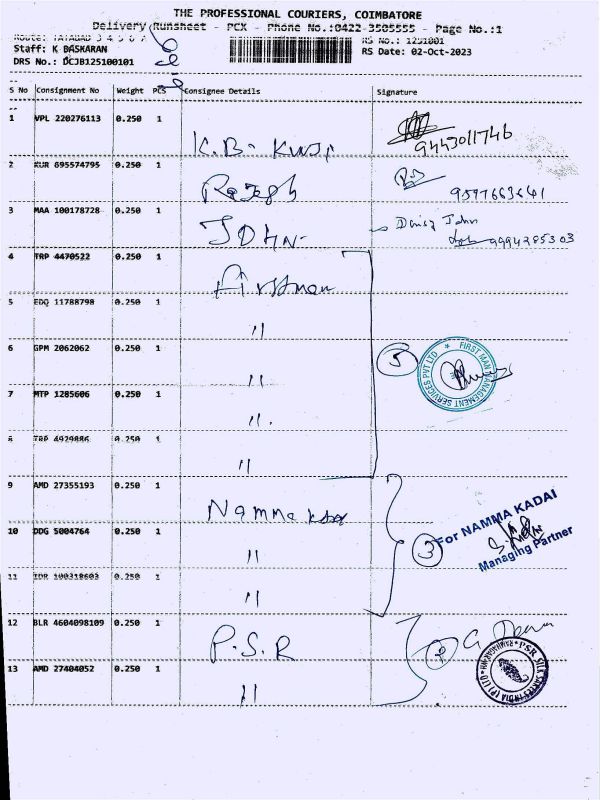 THE PROFESSIONAL COURIERS, COIMBATORE
Delivery Runsheet - PCX - Phone No.:0422-3505555 - Page No.:1
Route: TATABAD 3 4 5 6 7
RS No.: 1251001
Staff: K BASKARAN
RS Date: 02-Oct-2023
DRS No.: DCJB125100101
S No Consignment No Weight PCS Consignee Details Signature
1 VPL 220276113 0.250 1 K.B. 9443011746
2 KUR 695574795 0.250 1 Rajesh 9597663641
3 MAA 100178728 0.250 1 JOHN. Daisy John 9994285303
4 TRP 4470522 0.250 1 Firstman
5 EDQ 11788798 0.250 1 "
6 GPM 2062062 0.250 1 " 5 FIRST MAN MANAGEMENT SERVICES PVT LTD
7 MTP 1285606 0.250 1 "
8 TRP 4929886 0.250 1 "
9 AMD 27355193 0.250 1 Namma Kadai
10 DDG 5004764 0.250 1 " 3 For NAMMA KADAI
Managing Partner
11 IDR 100318603 0.250 1 "
12 BLR 4604098109 0.250 1 P.S.R 2
13 AMD 27404052 0.250 1 " PSR SILK SAREES INDIA (P) LTD